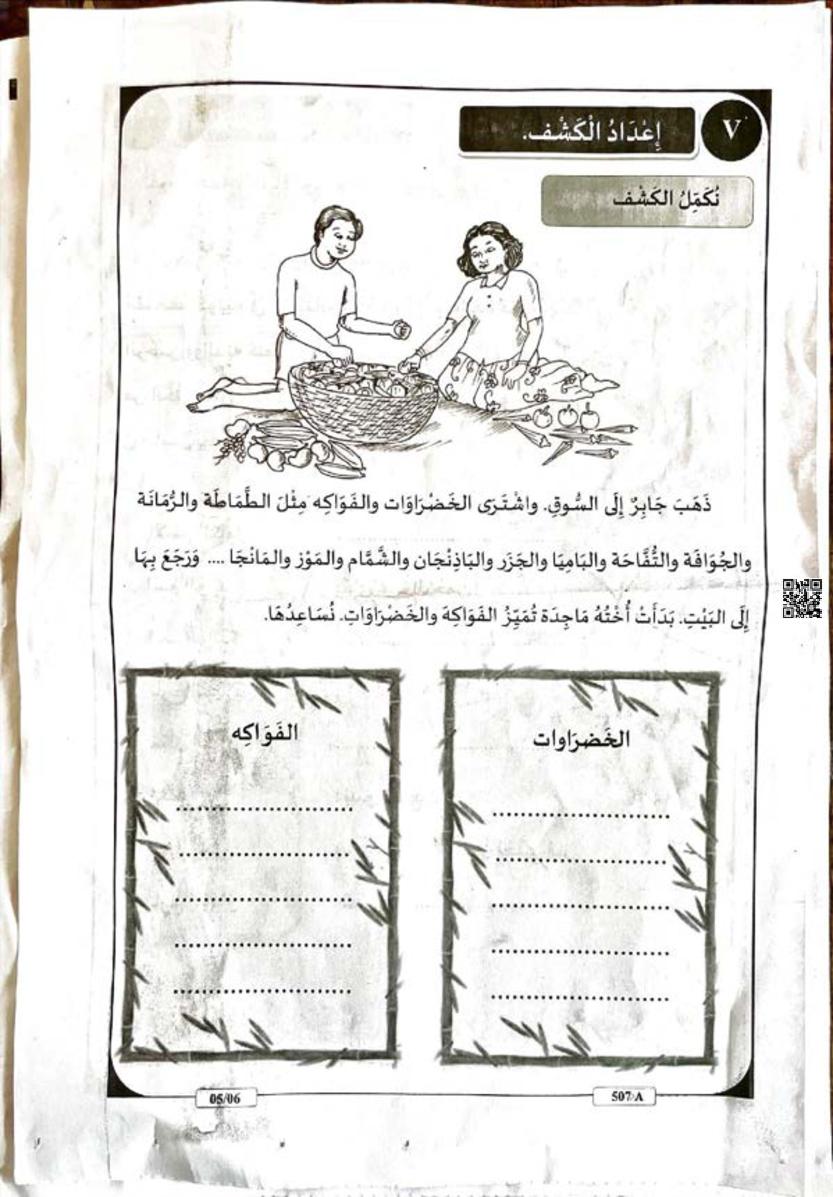 V
إِعْدَادُ الْكَشْف.
نُكَمِّلُ الكَشْف
ذَهَبَ جَابِرٌ إِلَى السُّوقِ. واشْتَرَى الخَضْرَاوَات والفَوَاكِه مِثْلَ الطَّمَاطَة والرُّمَانَة
والجُوَافَة والتُّفَّاحَة والبَامِيَا والجَزَر والبَاذِنْجَان والشَّمَّام والمَوْز والمَانْجَا .... وَرَجَعَ بِهَا
إِلَى البَيْتِ. بَدَأَتْ أُخْتُهُ مَاجِدَة تُمَيِّزُ الفَوَاكِهَ والخَضْرَاوَاتِ. نُسَاعِدُهَا.
الخَضرَاوات
الفَوَاكِه
507/A
05/06